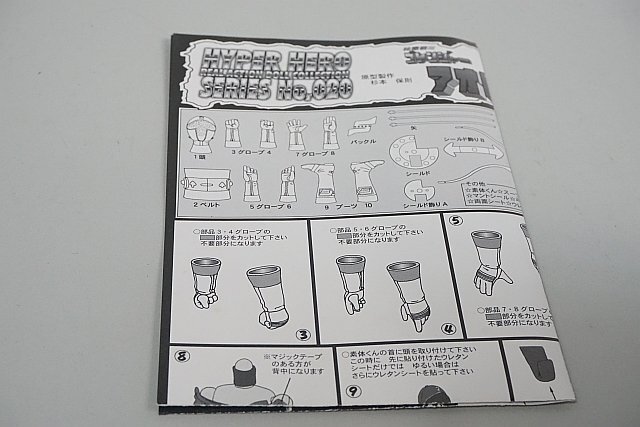 HYPER HERO
SERIES No,020
原型製作
杉本 保則
アオ
1 頭
3 グローブ 4
7 グローブ 8
バックル
矢
シールド飾り B
シールド
2 ベルト
5 グローブ 6
9 ブーツ 10
シールド飾り A
その他
☆素体くん☆ス
☆マントシール☆
☆両面シート☆
○部品3・4グローブの
部分をカットして下さい
不要部分になります
③
○部品5・6グローブの
部分をカットして下さい
不要部分になります
④
⑤
○部品7・8グローブ
部分をカット
不要部分にな
⑧
※マジックテープ
のある方が
背中になります
○素体くんの首に頭を取り付けて下さい
この時に 先に貼り付けたウレタン
シートだけでは ゆるい場合は
さらにウレタンシートを貼って下さい
⑨